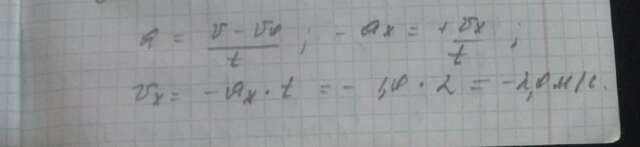 a = \frac{v - v_0}{t} ; - a_x = \frac{+ v_x}{t} ;
v_x = - a_x · t = - 1,0 · 2 = - 2,0 м/с.